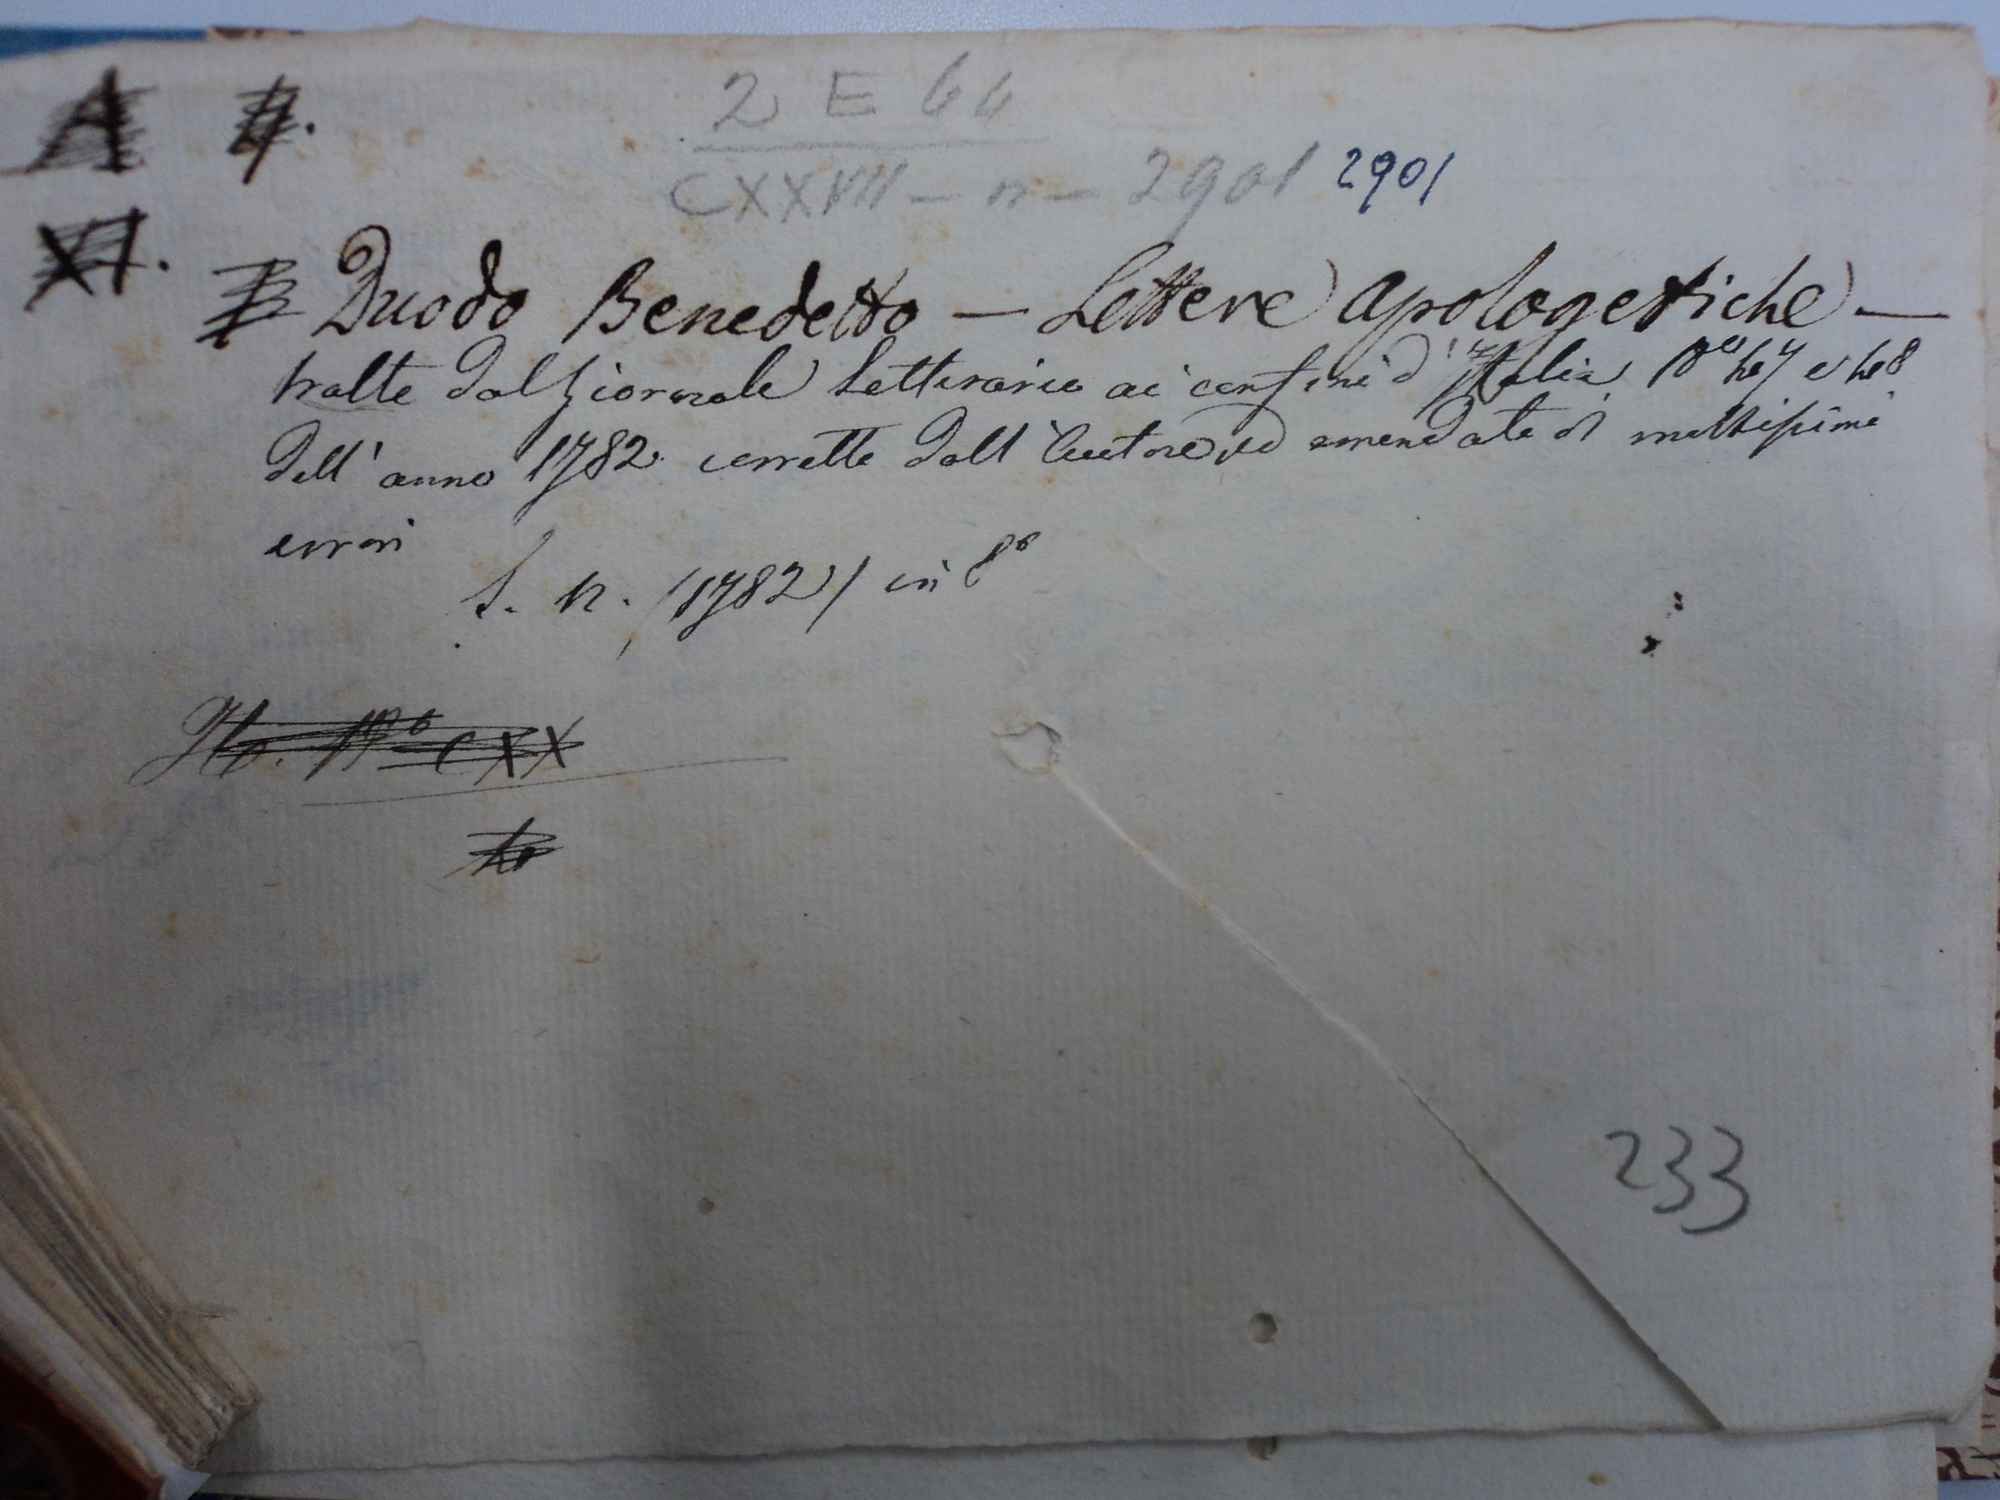 A 4.
2 E 66
CXXVIII – n – 2901 2901
XI.
Duodo Benedetto – Lettere apologetiche –
tratte dal Giornale Letterario ai confini d'Italia N.ri 47 e 48
dell'anno 1782 corrette dall'Autore ed emendate di moltissimi
errori
S. n. (1782) in 8º
Nº CXX
233